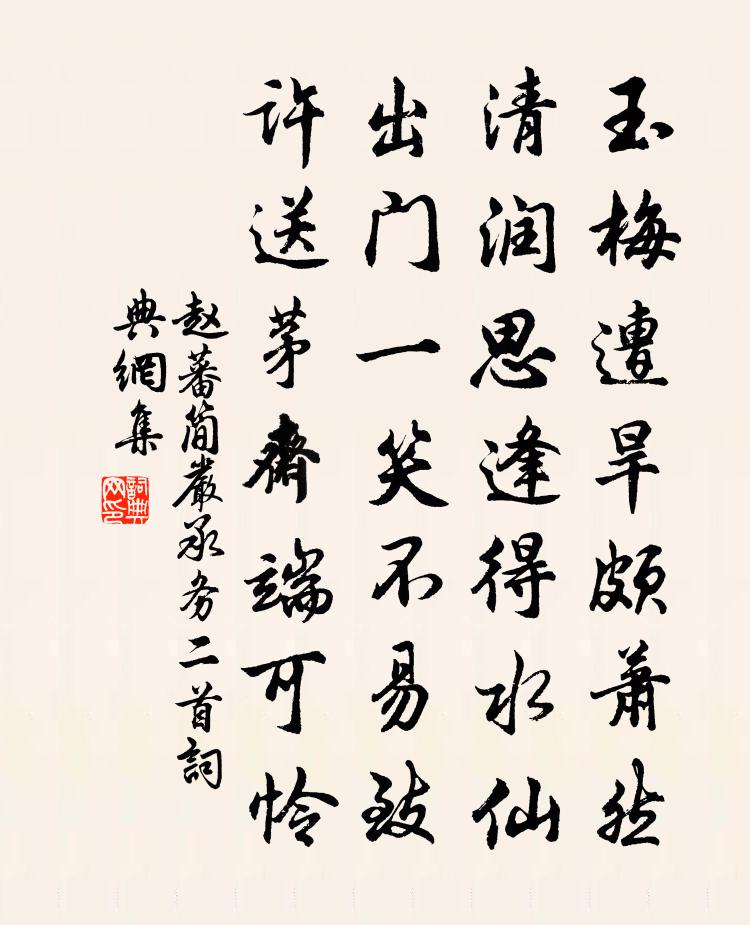 玉梅遭旱颇萧然
清润思逢得水仙
出门一笑不易致
许送茅齋端可怜
赵蕃简嚴承务二首詞
典網集
詞典网印